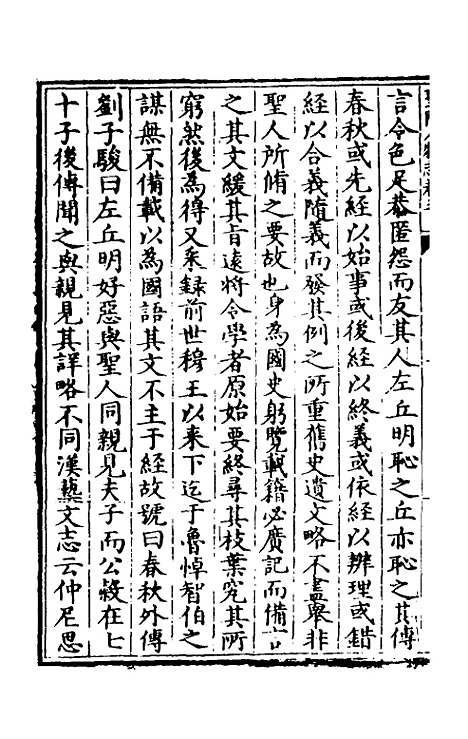 言令色足恭匿怨而友其人左丘明恥之丘亦恥之其傳
春秋或先經以始事或後經以終義或依經以辨理或錯
經以合義隨義而發其例之所重舊史遺文略不盡舉非
聖人所脩之要故也身為國史躬覽載籍必廣記而備言
之其文緩其旨遠將令學者原始要終尋其枝葉究其所
窮然後為得又采錄前世穆王以來下迄于魯悼智伯之
謀無不備載以為國語其文不主于經故號曰春秋外傳
劉子駿曰左丘明好惡與聖人同親見夫子而公榖在七
十子後傳聞之與親見其詳略不同漢藝文志云仲尼思